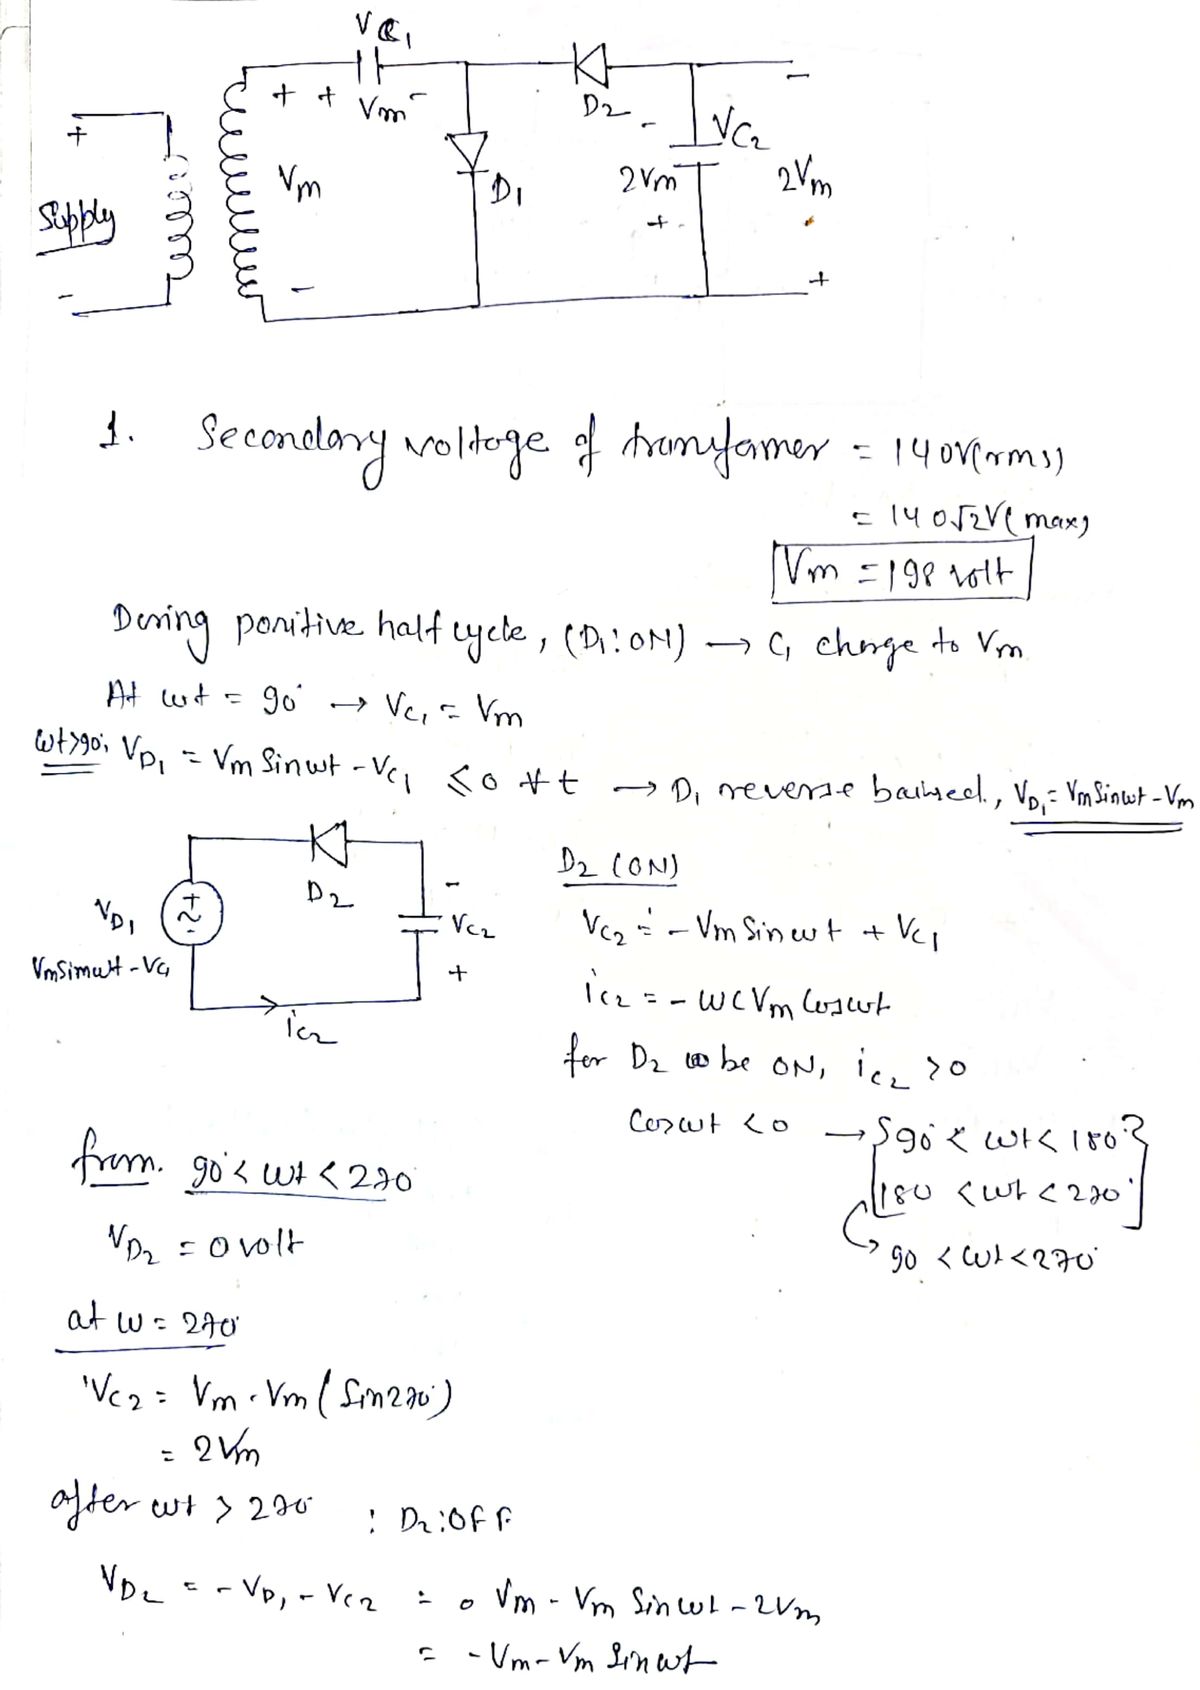 VC1
+ + Vm -
D2 -
VC2
+
Vm
D1
2Vm
2Vm
Supply
+
-
-
+
1. Secondary voltage of tranyfermer = 140V(rms)
= 140√2V(max)
Vm = 198 volt
During positive half cycle, (D1:ON) → C1 charge to Vm
At wt = 90° → VC1 = Vm
wt>90°, VD1 = Vm Sinwt - VC1 ≤ 0 ∀ t → D1 reverse baised., VD1 = VmSinwt - Vm
D2
VD1
+
~
-
-
VC2
+
VmSinwt - VC1
iC2
D2 (ON)
VC2 = - Vm Sin wt + VC1
iC2 = - WCVm Coswt
for D2 to be ON, iC2 > 0
Coswt < 0 → {90° < wt < 180°}
180 < wt < 270°
→ 90 < wt < 270°
from. 90° < wt < 270
VD2 = 0 volt
at w = 270°
VC2 = Vm - Vm (Sin270°)
= 2Vm
after wt > 270° : D2:OFF
VD2 = - VD1 - VC2 = 0 Vm - Vm Sinwt - 2Vm
= - Vm - Vm Sin wt